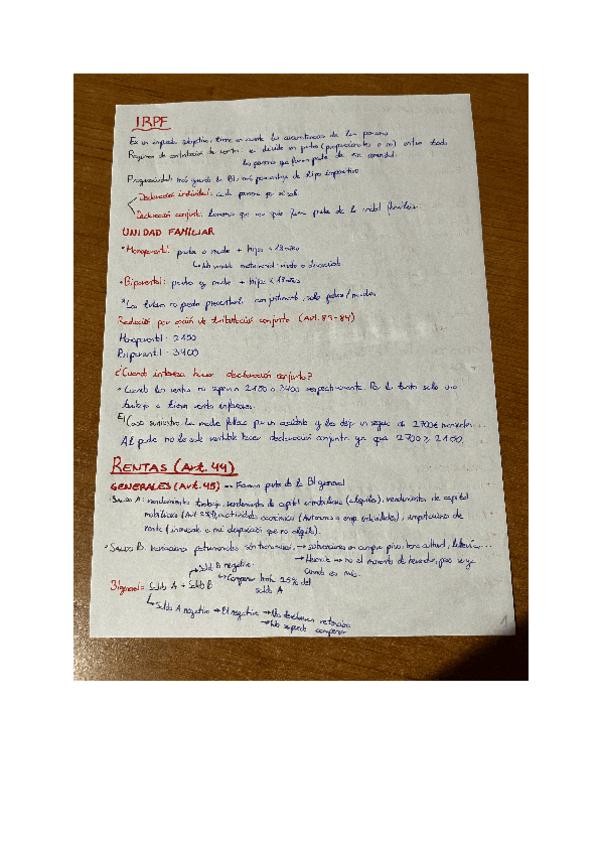 IRPF
Es un impuesto subjetivo, tiene en cuenta las circunstancias de las personas
Regimen de atribución de rentas: se divide en partes (proporcionales o no) entre todas
las personas que forman parte de esa comunidad.
Progresividad: más grande la BI más porcentaje de tipo impositivo
Declaración individual: cada persona por sí sola
Declaración conjunta: personas que forma parte de la unidad familiar.
UNIDAD FAMILIAR
• Monoparental: padre o madre + hijos < 18 años
• Biparental: padre y madre + hijos < 18 años
* Los tutores no pueden presentarla conjuntamente, solo padres/madres
Reducción por opción de tributación conjunta (Art. 83-84)
Monoparental: 2150
Biparental: 3400
¿Cuando interesa hacer declaración conjunta?
• Cuando las rentas no superen 2150 o 3400 respectivamente. Por lo tanto solo uno
trabaja o tienen renta inferiores.
Ej Caso la madre fallece por un accidente y les deja un seguro de 2700€
Al padre no le sale rentable hacer declaración conjunta ya que 2700 > 2150.
RENTAS (Art. 44)
GENERALES (Art. 45) → Forman parte de la BI general
• SALDO A: rendimientos trabajo, rendimientos de capital inmobiliario (alquiler), rendimientos de capital
mobiliario actividades económicas (Autónomos o emp. individuales), imputaciones de
renta (inmueble a mi disposición que no alquilo).
• SALDO B: Ganancias patrimoniales sin transmisión → subvenciones en compra piso, bono cultural, lotería...
→ no al momento de
Saldo B negativo
→ Compensar hasta 25% del
saldo A
BI general = Saldo A + Saldo B
Saldo A negativo → BI negativa → No devuelven retención
→ No se puede compensar
1